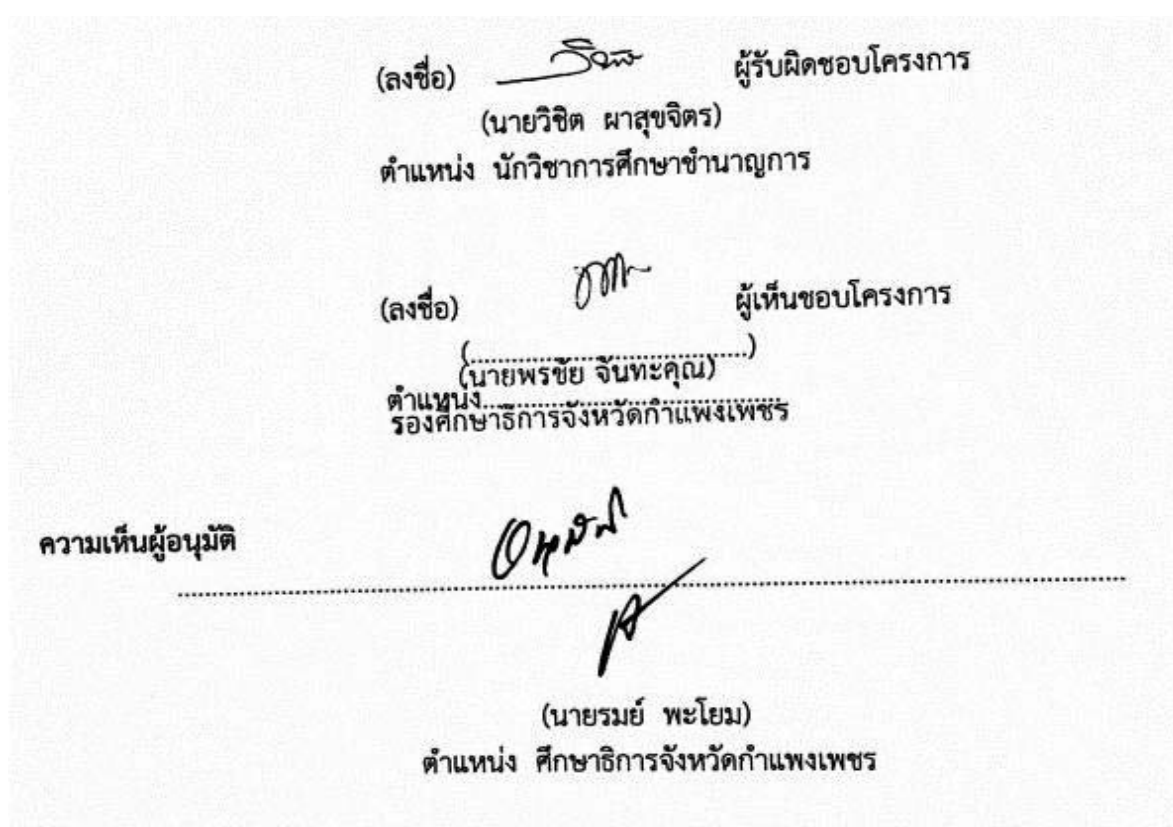 (ลงชื่อ) ผู้รับผิดชอบโครงการ
(นายวิชิต ผาสุขจิตร)
ตำแหน่ง นักวิชาการศึกษาชำนาญการ
(ลงชื่อ) ผู้เห็นชอบโครงการ
(..............................)
(นายพรชัย จันทะคุณ)
ตำแหน่ง..............................
รองศึกษาธิการจังหวัดกำแพงเพชร
อนุมัติ
ความเห็นผู้อนุมัติ
(นายรมย์ พะโยม)
ตำแหน่ง ศึกษาธิการจังหวัดกำแพงเพชร